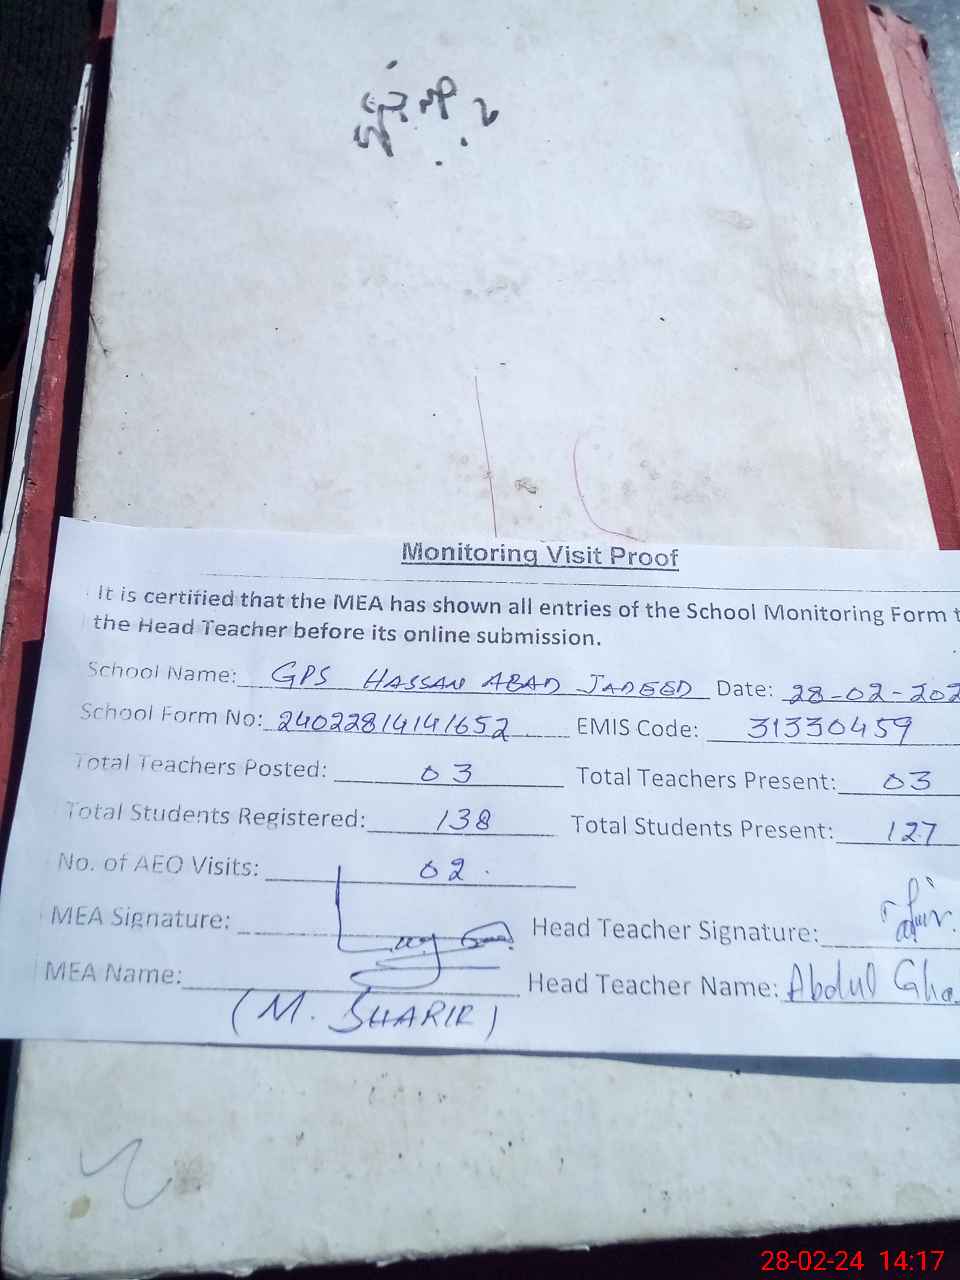 Monitoring Visit Proof
It is certified that the MEA has shown all entries of the School Monitoring Form t
the Head Teacher before its online submission.
School Name: GPS HASSAN ABAD JADEED Date: 28-02-202
School Form No: 24022814141652 EMIS Code: 31330459
Total Teachers Posted: 03 Total Teachers Present: 03
Total Students Registered: 138 Total Students Present: 127
No. of AEO Visits: 02
MEA Signature: Head Teacher Signature:
MEA Name: Head Teacher Name: Abdul Gha
(M. SHARIF)
28-02-24 14:17